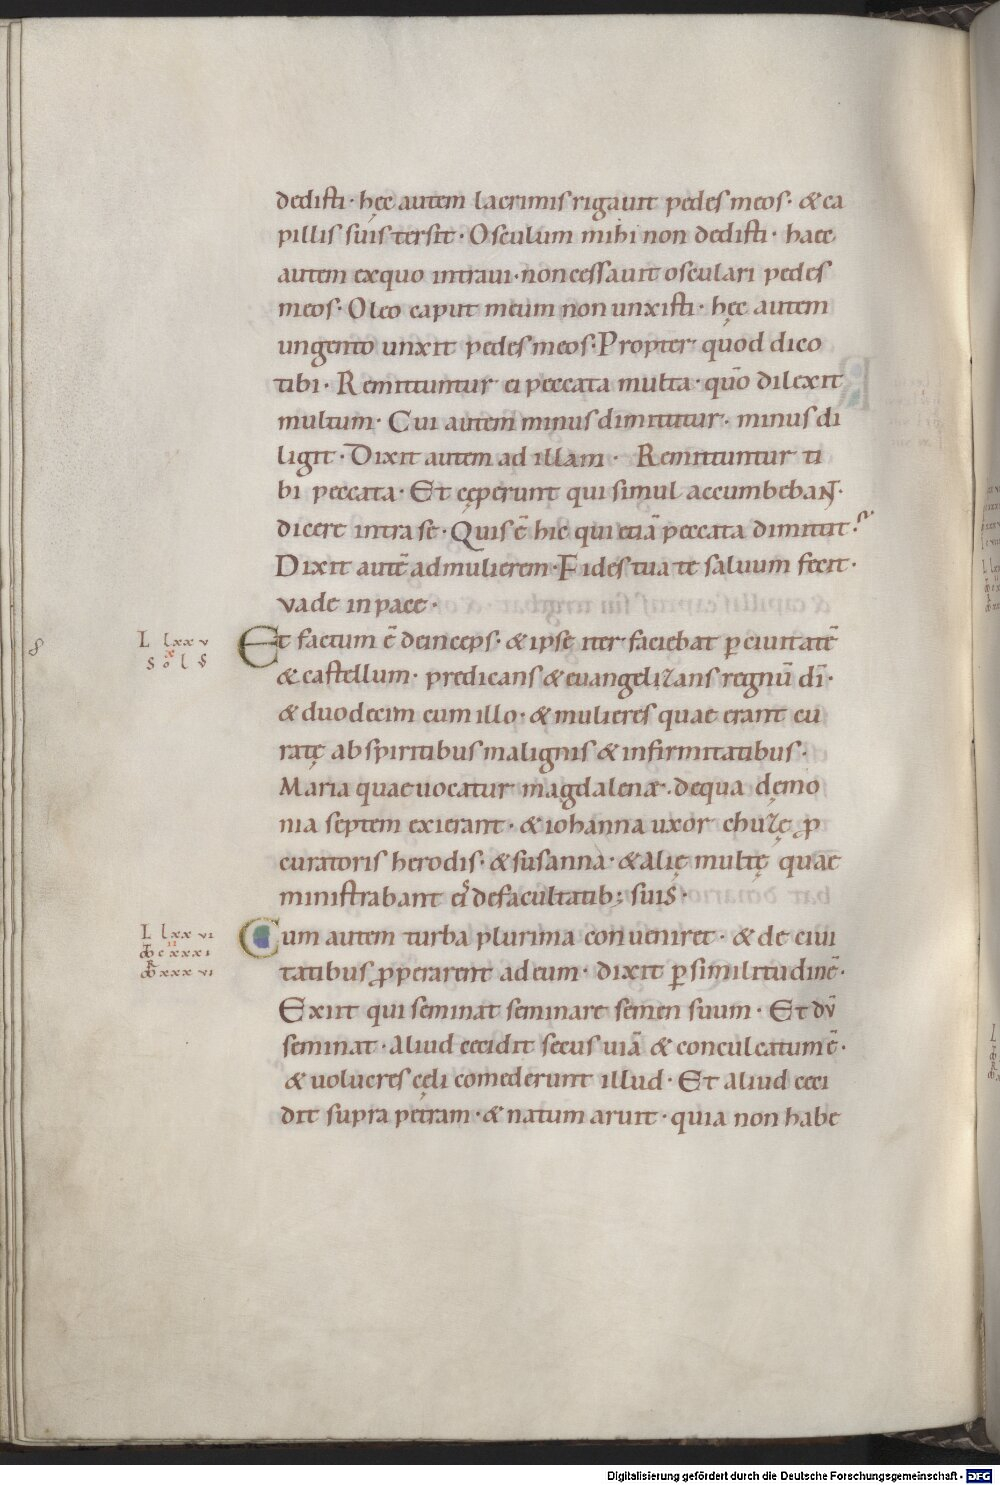 dedisti · hęc autem lacrimis rigauit pedes meos · & ca
pillis suis tersit · Osculum mihi non dedisti · haec
autem ex quo intraui · non cessauit osculari pedes
meos · Oleo caput meum non unxisti · hęc autem
ungento unxit pedes meos · Propter quod dico
tibi · Remittuntur ei peccata multa · quō dilexit
multum · Cui autem minus dimittitur · minus di
ligit · Dixit autem ad illam · Remittuntur ti
bi peccata · Et cęperunt qui simul accumbebant ·
dicere intra se · Quis ē hic qui etiā peccata dimittit?
Dixit autē ad mulierem · Fides tua te saluum fecit ·
vade in pace ·
8
L lxxv
Et factum ē deinceps · & ipse iter faciebat p ciuitatē
& castellum · predicans & euangelizans regnū dī ·
& duodecim cum illo · & mulieres quae erant cu
ratę ab spiritibus malignis & infirmitatibus ·
Maria quae uocatur magdalenæ · de qua dęmo
nia septem exierant · & iohanna uxor chuzę p
curatoris herodis · & susanna · & alię multę quae
ministrabant ei de facultatib; suis ·
L lxxvi
cxxxi
xxxvi
Cum autem turba plurima conueniret · & de ciui
tatibus pperarent ad eum · dixit p similitudinē ·
Exiit qui seminat seminare semen suum · Et dū
seminat · aliud cecidit secus uiā & conculcatum ē ·
& uolucres cęli comederunt illud · Et aliud ceci
dit supra petram · & natum aruit · quia non habe
Digitalisierung gefördert durch die Deutsche Forschungsgemeinschaft - DFG